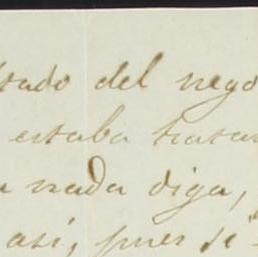 stado del nego
estaba tratan
a nada diga,
asi, pues si